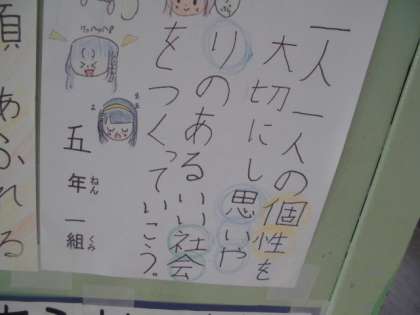 一人一人の個性を
大切にし思いや
りのあるいい社会
をつくっていこう。
五年一組
ねん
くみ
あふれる